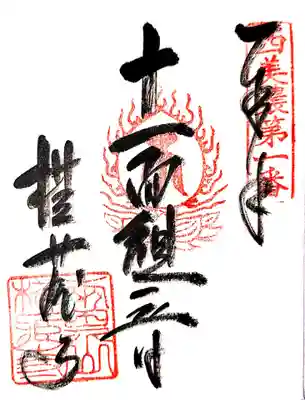 西美濃第一番
奉拝
十一面観音
横蔵寺